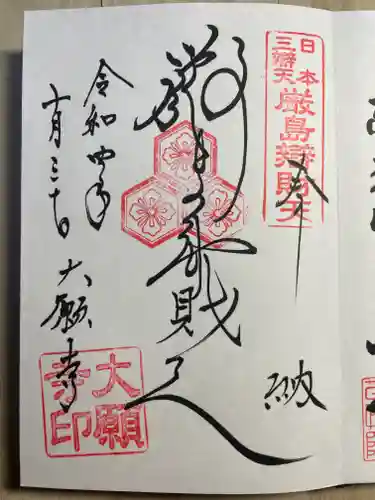 奉納
日本三辨天
厳島辯財天
厳島辨財天
令和四年
十月三十日
大願寺
大願寺印